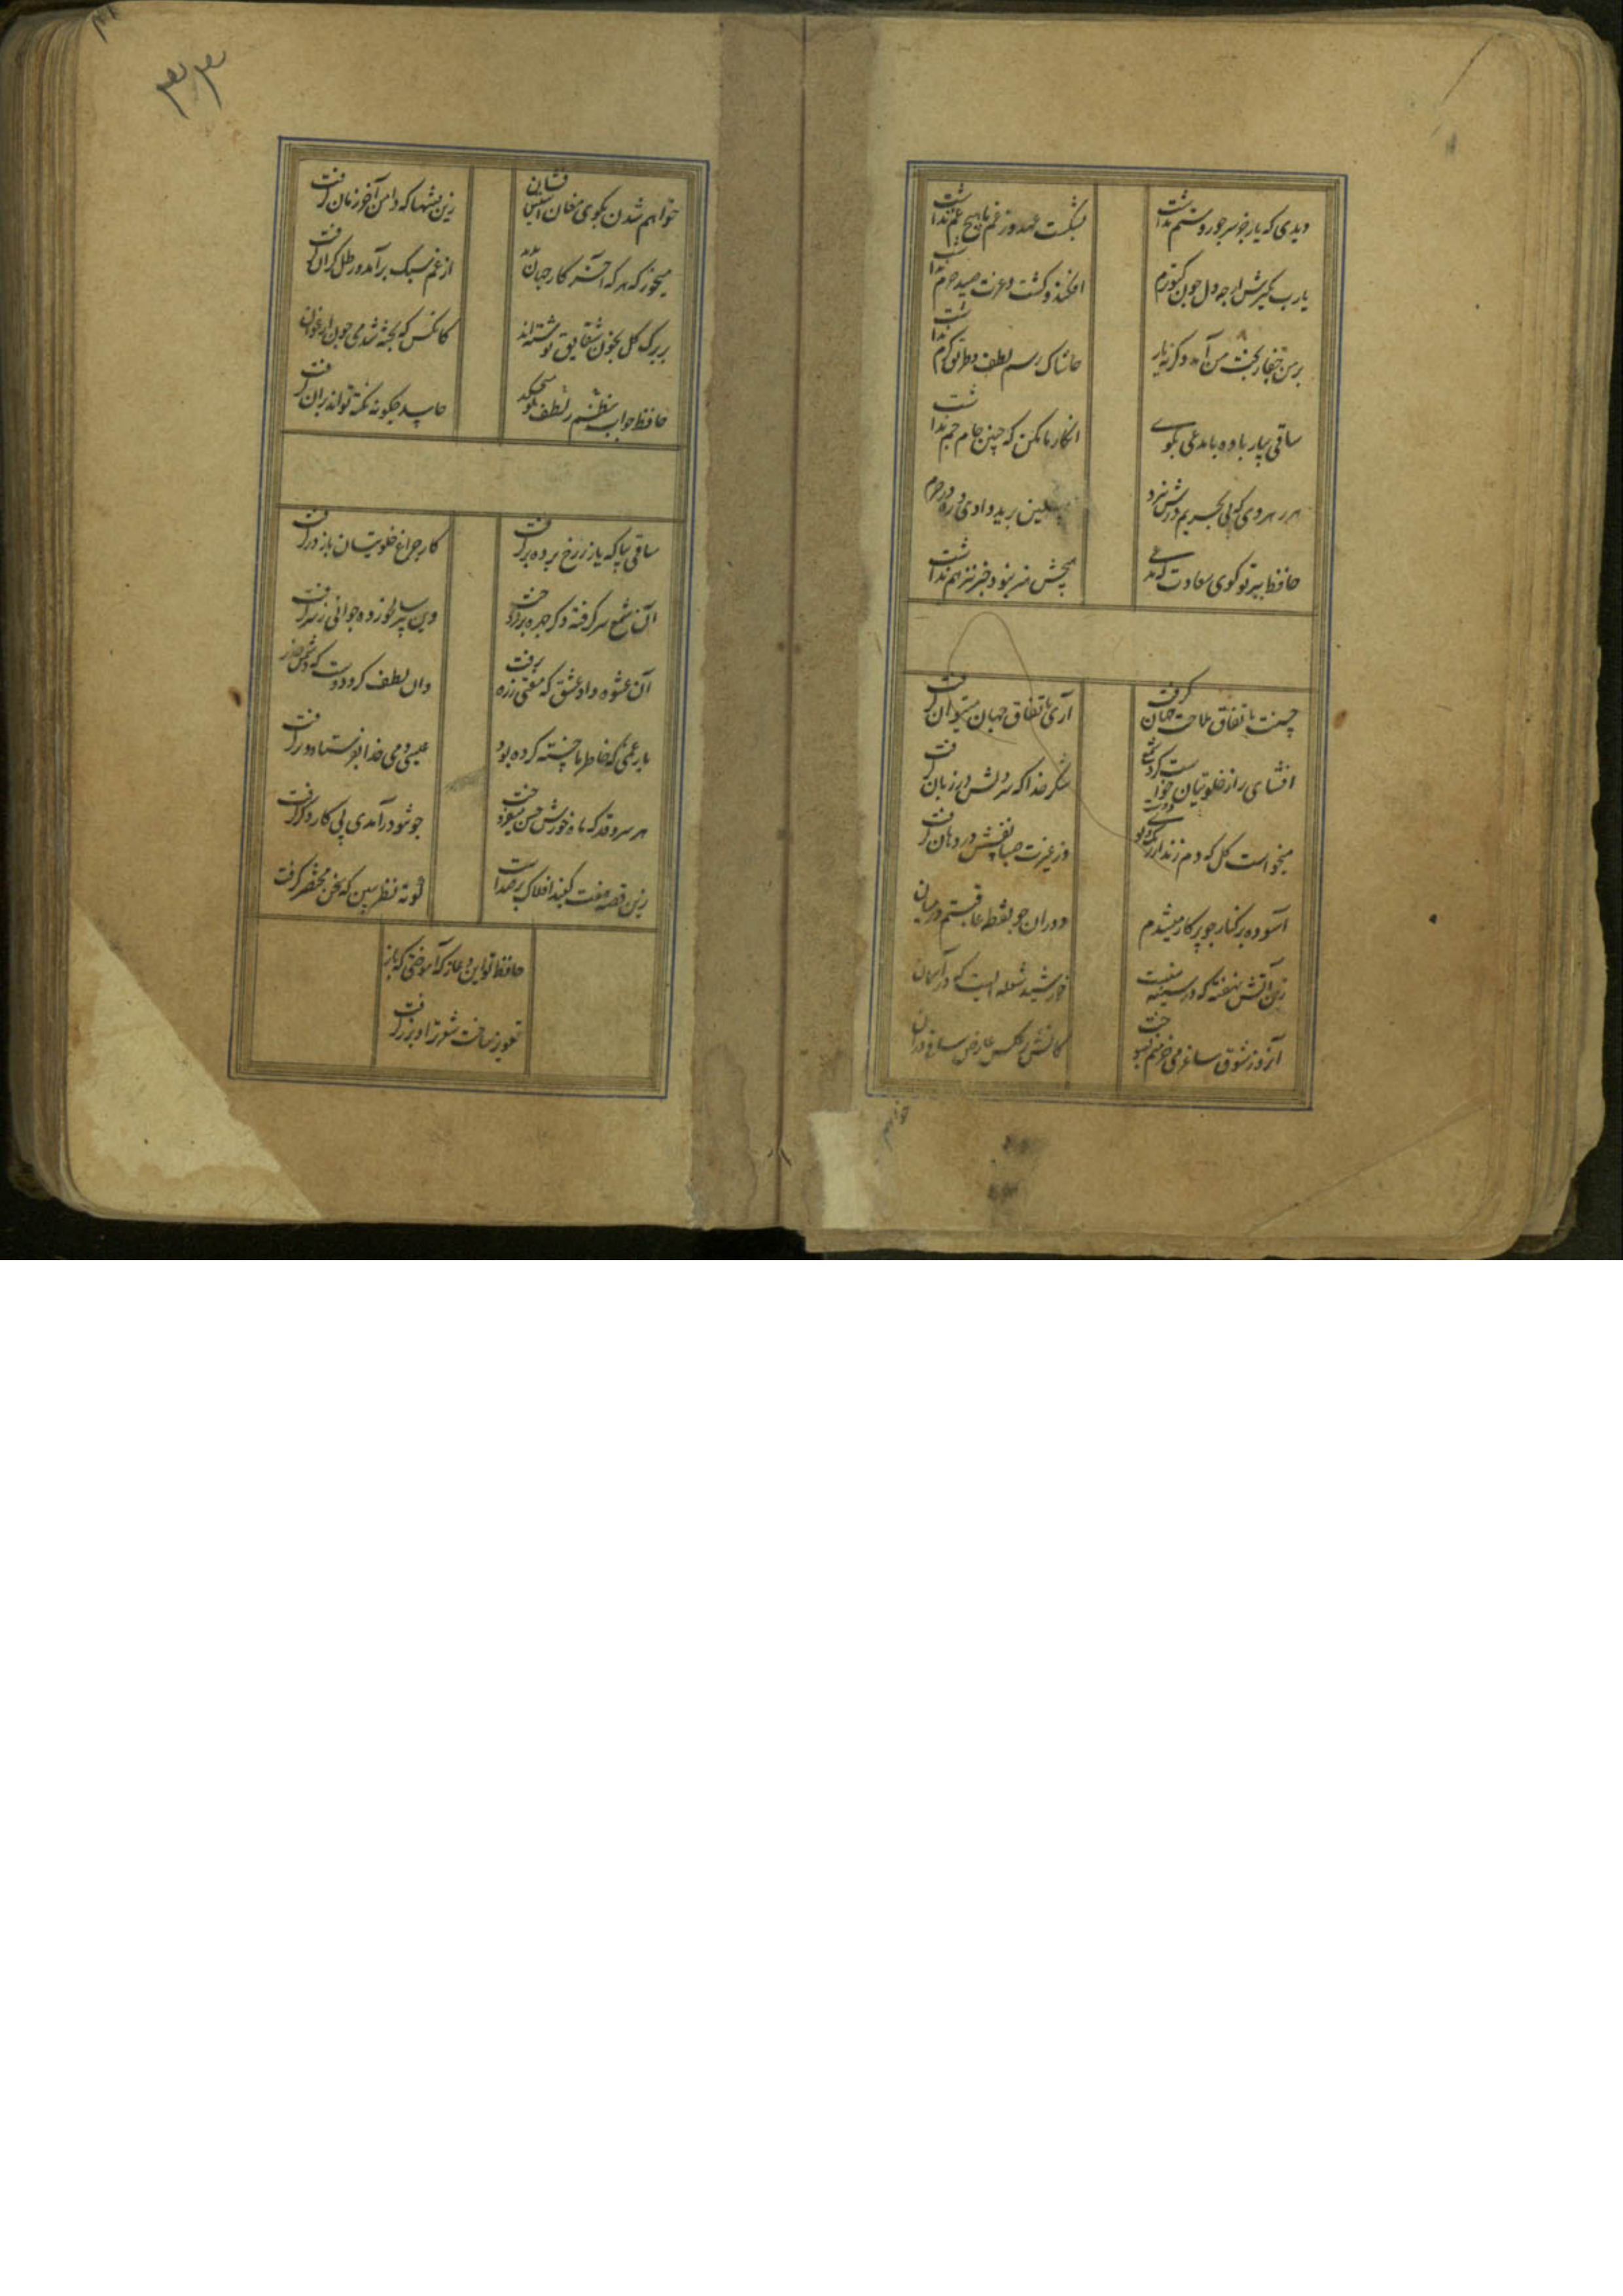 دیدی که یار جز سر جور و ستم نداشت
بشکست عهد وز غم ما هیچ غم نداشت
یارب مگیرش ارچه دل چون کبوترم
افکند و کشت و عزت صید حرم نداشت
بر من جفا ز بخت من آمد وگرنه یار
حاشاک رسم لطف و طریق کرم نداشت
ساقی بیار باده با مدعی بگوی
انکار ما مکن که چنین جام جم نداشت
هر رهروی که پی بحریم درش نبرد
مسکین برید وادی و ره در حرم نداشت
حافظ ببر تو گوی سعادت که مدعی
هیچش هنر نبود و خبر نیز هم نداشت
حسنت باتفاق ملاحت جهان گرفت
آری باتفاق جهان میتوان گرفت
افشای راز خلوتیان خواست کرد شمع
شکر خدا که سر دلش در زبان گرفت
میخواست گل که دم زند از رنگ و بوی دوست
وز غیرت صبا نفسش در دهان گرفت
آسوده بر کنار چو پرکار میشدم
دوران چو نقطه عاقبتم در میان گرفت
زین آتش نهفته که در سینه منست
خورشید شعله ایست که در آسمان گرفت
آنروز شوق ساغر می خرمنم بسوخت
کاتش ز عکس عارض ساقی در آن گرفت
خواهم
۳۳
خواهم شدن بکوی مغان آستین فشان
زین فتنها که دامن آخر زمان گرفت
میخور که هر که آخر کار جهان بدید
از غم سبک برآمد و رطل گران گرفت
بر برگ گل بخون شقایق نوشته‌اند
کانکس که پخته شد می چون ارغوان گرفت
حافظ چو آب لطف ز نظم تو میچکد
حاسد چگونه نکته تواند بر آن گرفت
ساقی بیا که یار ز رخ پرده برگرفت
کار چراغ خلوتیان باز درگرفت
آن شمع سرگرفته دگر چهره برفروخت
وین پیر سالخورده جوانی ز سر گرفت
آن عشوه داد عشق که مفتی ز ره برفت
وان لطف کرد دوست که دشمن حذر گرفت
بار غمی که خاطر ما خسته کرده بود
عیسی دمی خدا بفرستاد و برگرفت
هر سروقد که بر مه و خور حسن میفروخت
چو تو درآمدی پی کار دگر گرفت
زین قصه هفت گنبد افلاک پر صداست
کوته نظر ببین که سخن مختصر گرفت
حافظ تو این دعا ز که آموختی که یار
تعویذ ساخت شعر ترا و بزر گرفت